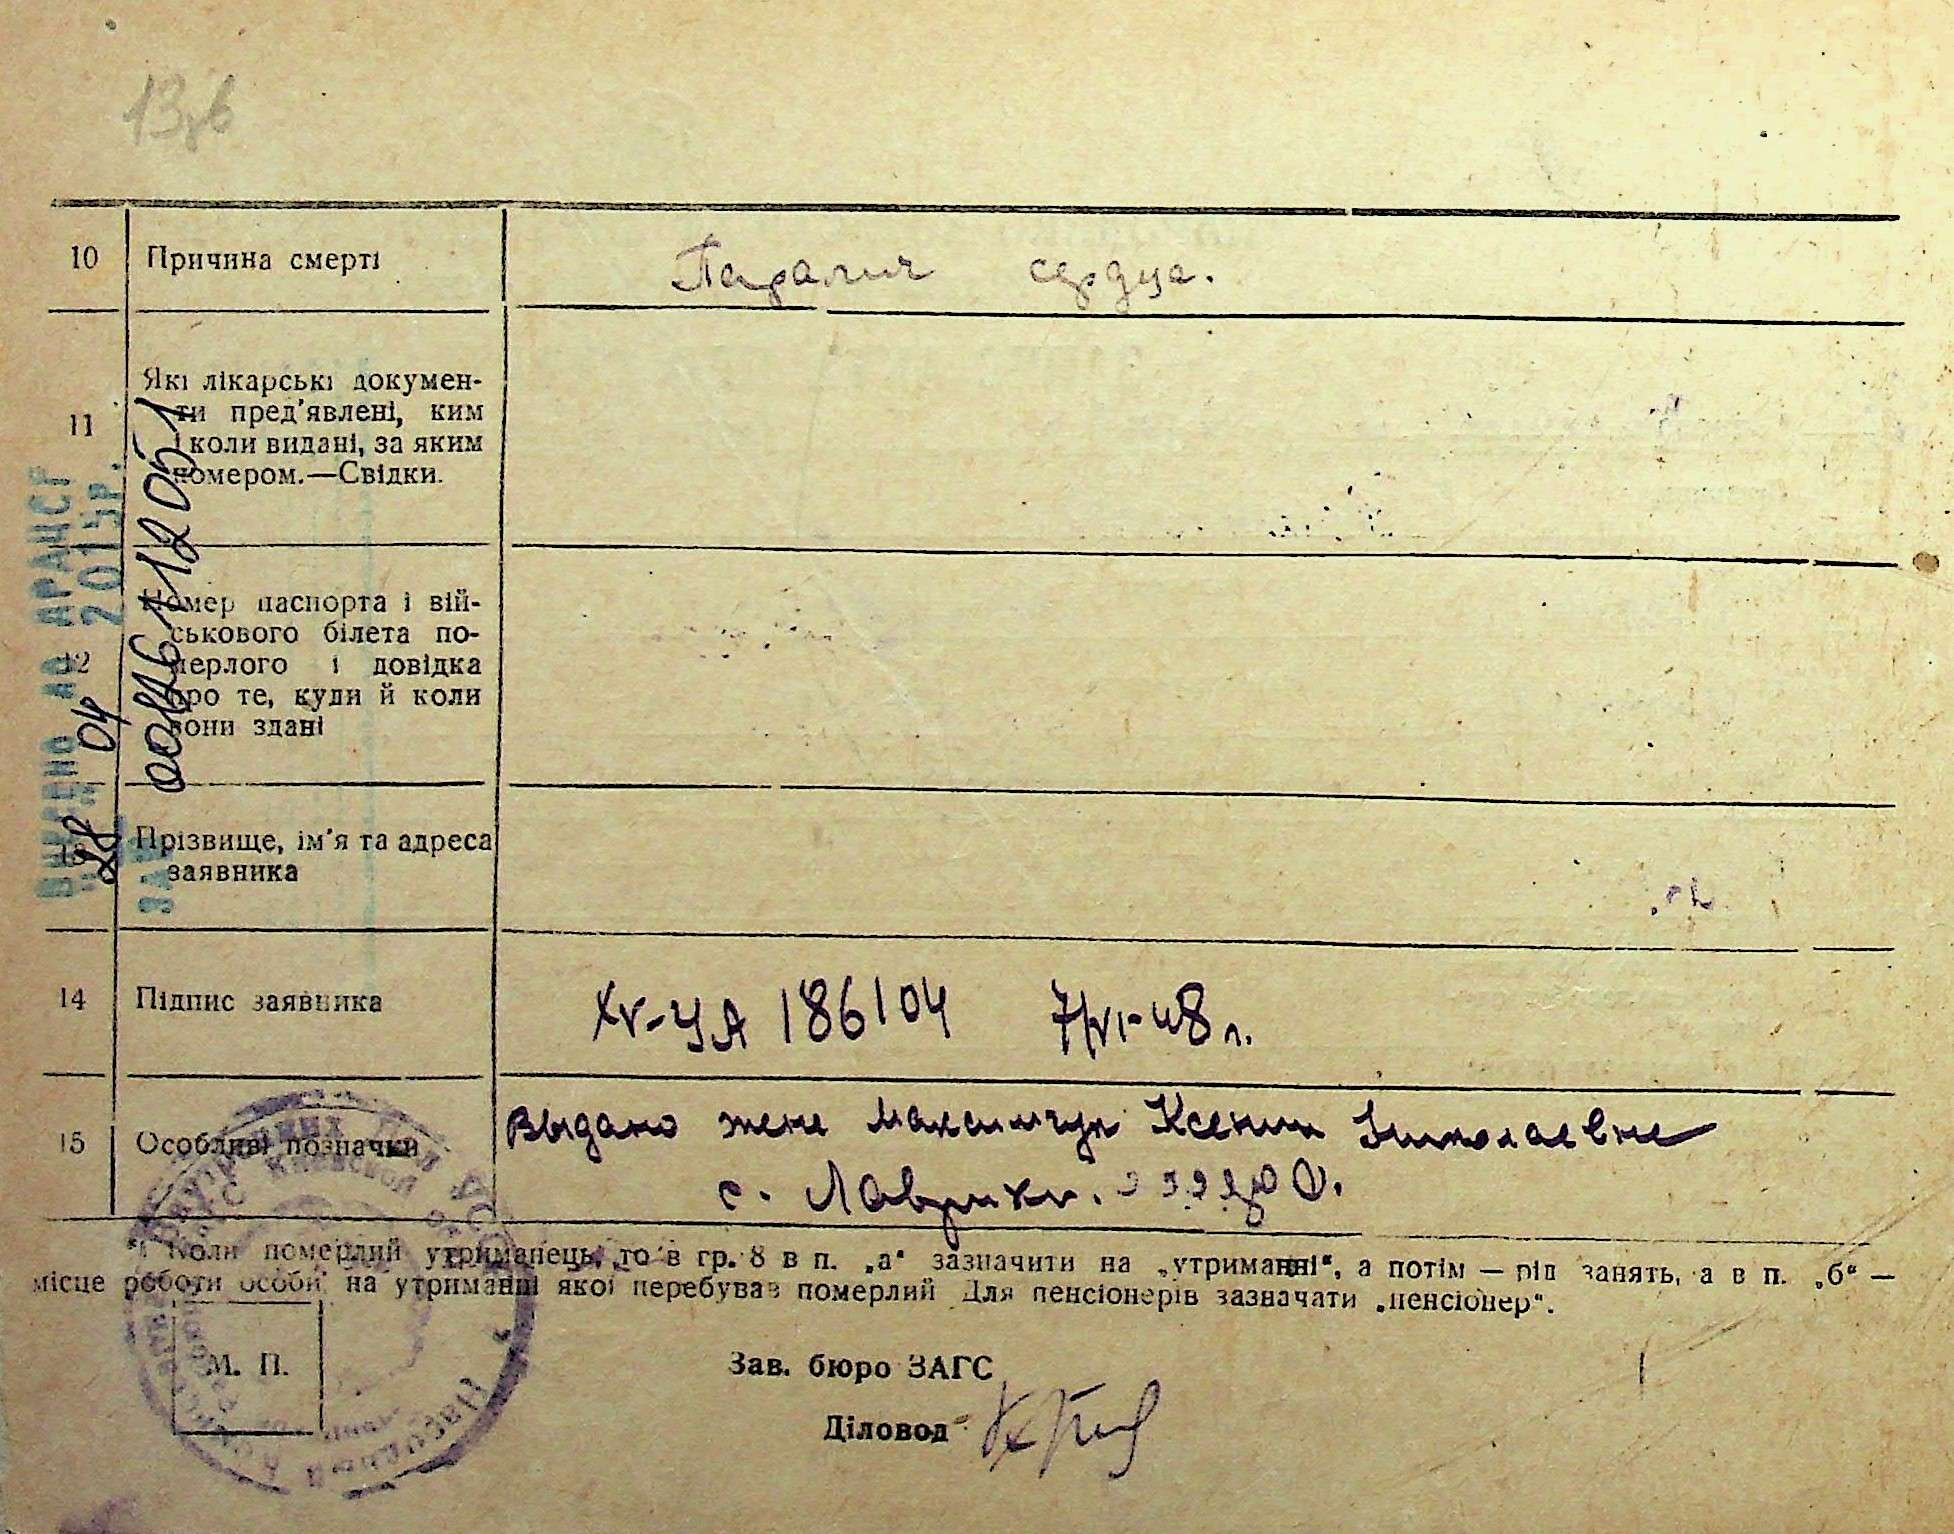 10 Причина смерті Паралич сердца.
11 Які лікарські докумен-
ти пред'явлені, ким
і коли видані, за яким
номером.—Свідки.
12 Номер паспорта і вій-
ськового білета по-
мерлого і довідка
про те, куди й коли
вони здані
13 Прізвище, ім'я та адреса
заявника
ВИДАНО ДО ДРАЦСГ
28 04 2015р.
00116112051
14 Підпис заявника XV-УА 186104 7/VI-48 г.
15 Особливі позначки Выдано жене Максимчук Ксении Николаевне
с. Лаврики.
*) Коли померлий утриманець, то в гр. 8 в п. „а“ зазначити на „утриманні“, а потім — рід занять, а в п. „б“ —
місце роботи особи, на утриманні якої перебував померлий Для пенсіонерів зазначати „пенсіонер“.
М. П.
Зав. бюро ЗАГС
Діловод